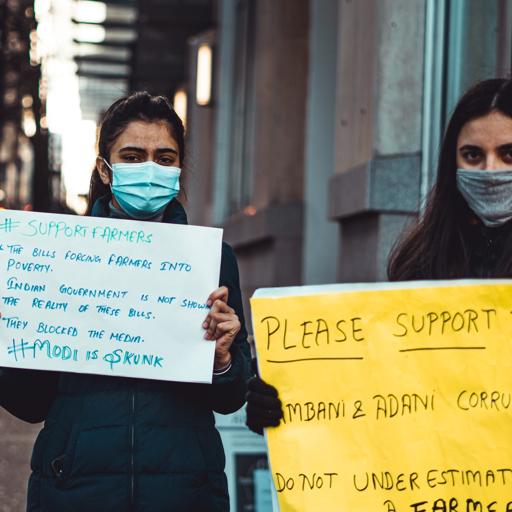 # SUPPORT FARMERS
THE BILLS FORCING FARMERS INTO
POVERTY.
INDIAN GOVERNMENT IS NOT SHOW
THE REALITY OF THESE BILLS.
THEY BLOCKED THE MEDIA.
#MODI IS SKUNK
PLEASE SUPPORT
MBANI & ADANI CORRU
DO NOT UNDERESTIMAT
A FARME